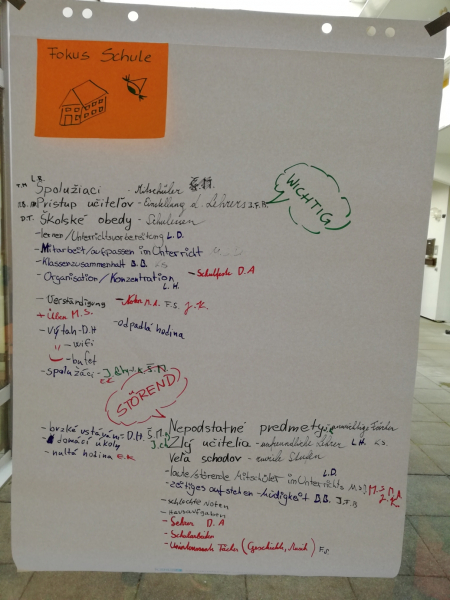 Fokus Schule
L.B.
T.M. Spolužiaci - Mitschüler
Prístup učiteľov - Einstellung d. Lehrers J.F.
D.T. Školské obedy - Schulessen
- lernen/Unterrichtsvorbereitung L.D.
- Mitarbeit/aufpassen im Unterricht
- Klassenzusammenhalt B.B.
- Organisation/Konzentration
L.H.
- Schulfeste D.A
- Verständigung
- Noten M.A. F.S. J.K.
+ M.S.
- výťah - D.H
- odpadlá hodina
- wifi
- bufet
- spolužáci - Š.N.
WICHTIG
STÖREND
- brzká vstávání - D.H. Š.N.
- domácí úkoly
- nultá hodina E.K
Nepodstatné predmety - unwichtige Fächer
Zlý učitelia - Lehrer L.H.
Veľa schodov - zuviele Stufen
- laute/störende Mitschüler im Unterricht L.D. M.S.
- zeitiges aufstehen - Müdigkeit B.B. J.T.
J.K
- schlechte Noten
- Hausaufgaben
- D.A
- Uninteressante Fächer (Geschichte, Musik) F.S.